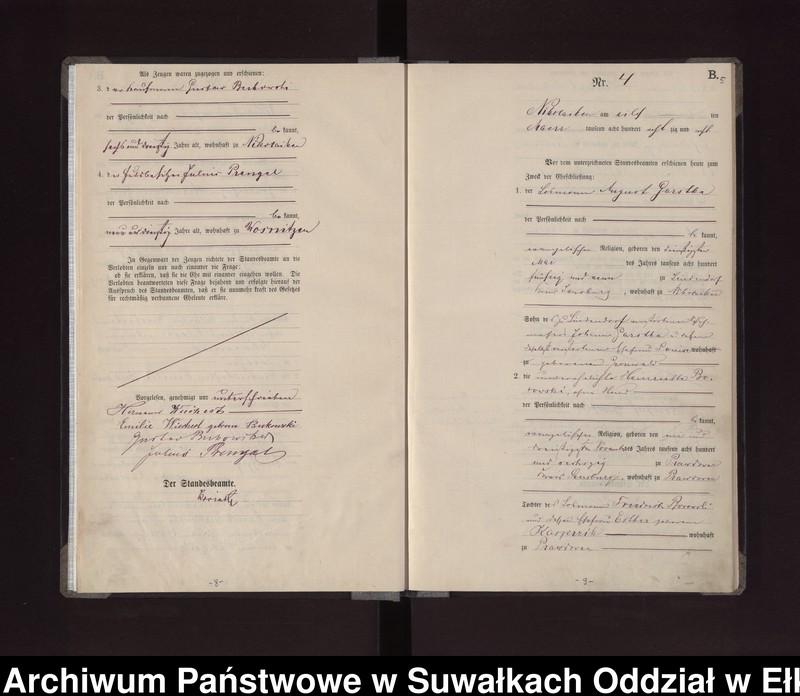 Als Zeugen waren zugezogen und erschienen:
3. der Kaufmann Gustav
der Persönlichkeit nach
be kannt,
sechs und dreißig Jahre alt, wohnhaft zu Nikolaiken
4. der Julius Prengel
der Persönlichkeit nach
be kannt,
neun und dreißig Jahre alt, wohnhaft zu Wosnitzen
In Gegenwart der Zeugen richtete der Standesbeamte an die
Verlobten einzeln und nach einander die Frage:
ob sie erklären, daß sie die Ehe mit einander eingehen wollen. Die
Verlobten beantworteten diese Frage bejahend und erfolgte hierauf der
Ausspruch des Standesbeamten, daß er sie nunmehr kraft des Gesetzes
für rechtmäßig verbundene Eheleute erkläre.
Vorgelesen, genehmigt und unterschrieben
Hermann
Emilie geborne
Gustav
Julius Prengel
Der Standesbeamte.
-8-
B.
Nr. 4
Nikolaiken am elf ten
tausend acht hundert acht zig und acht
Vor dem unterzeichneten Standesbeamten erschienen heute zum
Zweck der Eheschließung:
1. der Losmann August Garstka
der Persönlichkeit nach
be kannt,
evangelischer Religion, geboren den dreißigsten
Mai des Jahres tausend acht hundert
und zu Lindendorf
Kreis Sensburg, wohnhaft zu Nikolaiken
Sohn des zu Lindendorf verstorbenen
Johann Garstka und dessen
verstorbenen Ehefrau Louise wohnhaft
zu geborene
2. die unverehelichte Henriette Bo-
rowski, ohne
der Persönlichkeit nach
be kannt,
evangelischer Religion, geboren den ein und
zwanzigsten des Jahres tausend acht hundert
und sechszig zu Prawdowen
Kreis Sensburg, wohnhaft zu Prawdowen
Tochter des Losmann Friedrich Borowski
und dessen Ehefrau Esther geborene
wohnhaft
zu Prawdowen
-9-
Archiwum Państwowe w Suwałkach Oddział w Eł